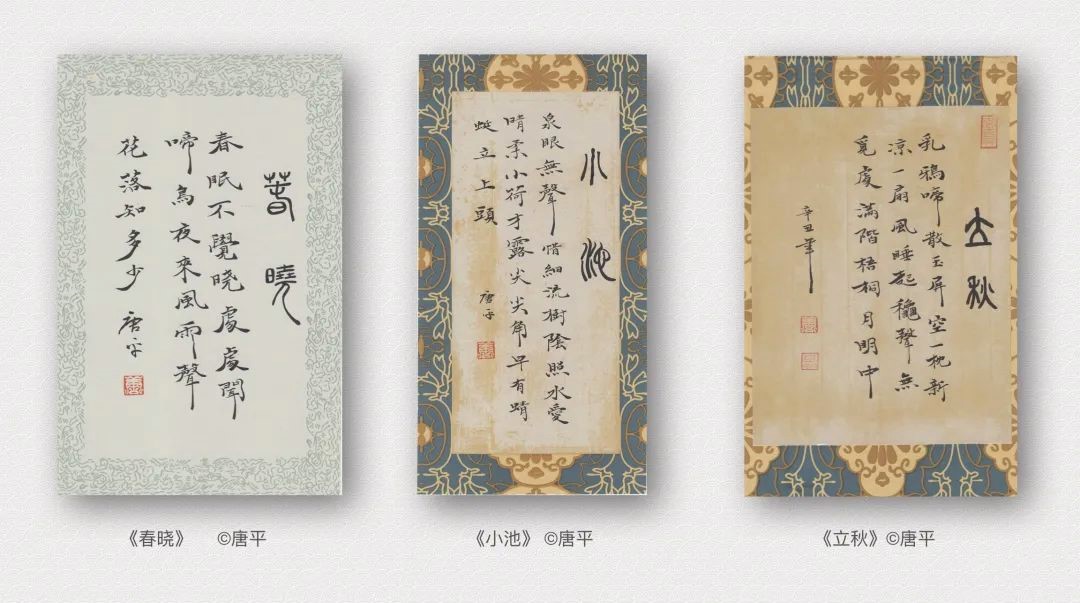 春曉
春眠不覺曉處處聞
啼鳥夜來風雨聲
花落知多少
唐平
小池
泉眼無聲惜細流樹陰照水愛
晴柔小荷才露尖尖角早有蜻
蜓立上頭
唐平
立秋
乳鴉啼散玉屏空一枕新
凉一扇風睡起龝聲無
覓處滿階梧桐月明中
辛丑年
《春晓》 ©唐平
《小池》 ©唐平
《立秋》©唐平